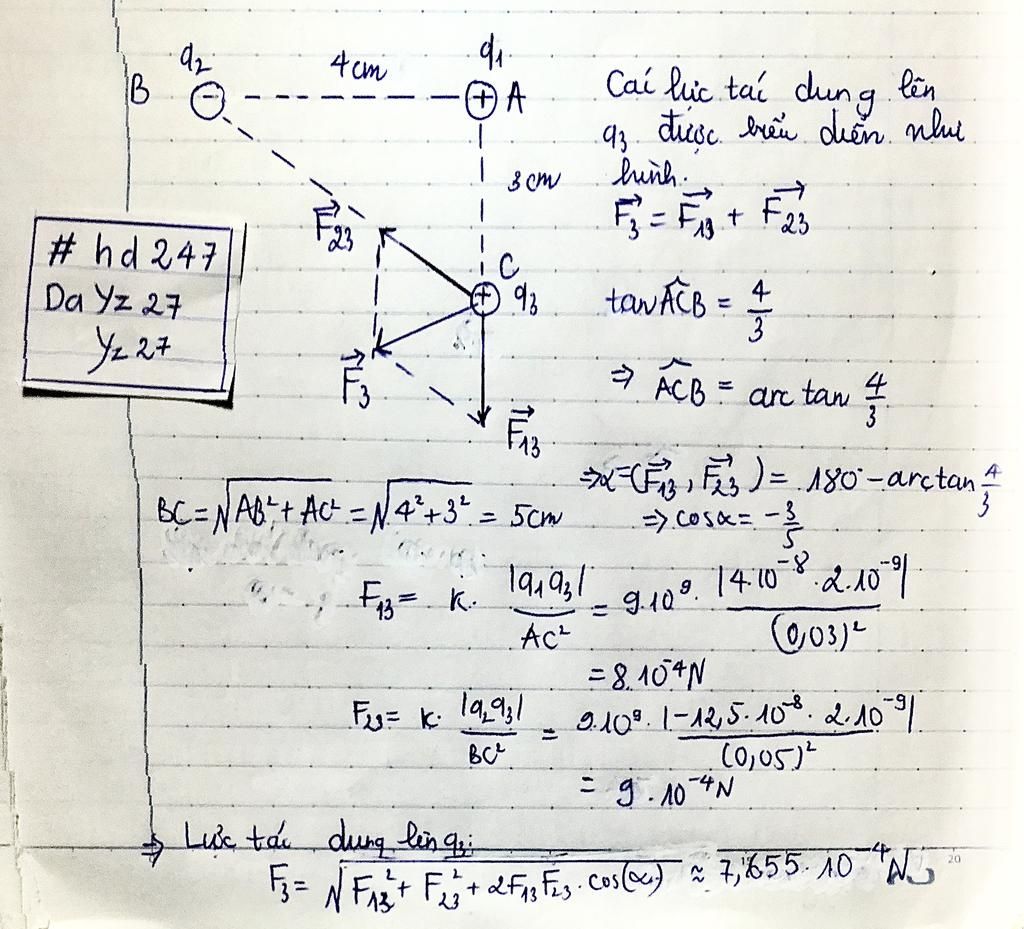 q₂
4cm
q₁
B
A
3cm
C
q₃
F⃗₂₃
F⃗₃
F⃗₁₃
# hd247
DaYz27
Yz27
Caí lực taí dung lên
q₃ được biểu diễn như
hình.
F⃗₃ = F⃗₁₃ + F⃗₂₃
tan ACB̂ = 4/3
⇒ ACB̂ = arctan 4/3
⇒ α = (F⃗₁₃, F⃗₂₃) = 180 - arctan 4/3
⇒ cosα = -3/5
BC = √(AB² + AC²) = √(4² + 3²) = 5cm
F₁₃ = k. |q₁q₃|/AC² = 9.10⁹. |4.10⁻⁸ . 2.10⁻⁹|/(0,03)²
= 8.10⁻⁴N
F₂₃ = k. |q₂q₃|/BC² = 9.10⁹. |-12,5.10⁻⁸ . 2.10⁻⁹|/(0,05)²
= 9.10⁻⁴N
⇒ Lực tác dung lên q₃:
F₃ = √(F₁₃² + F₂₃² + 2F₁₃F₂₃.cos(α)) ≈ 7,655.10⁻⁴N
20